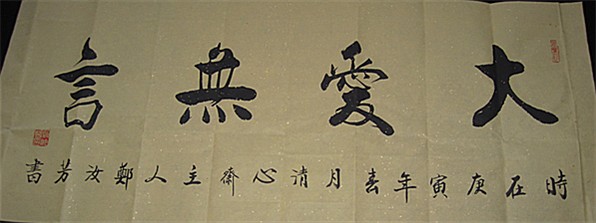 大愛無言
時在庚寅年春月清心齋主人鄭汝芳書